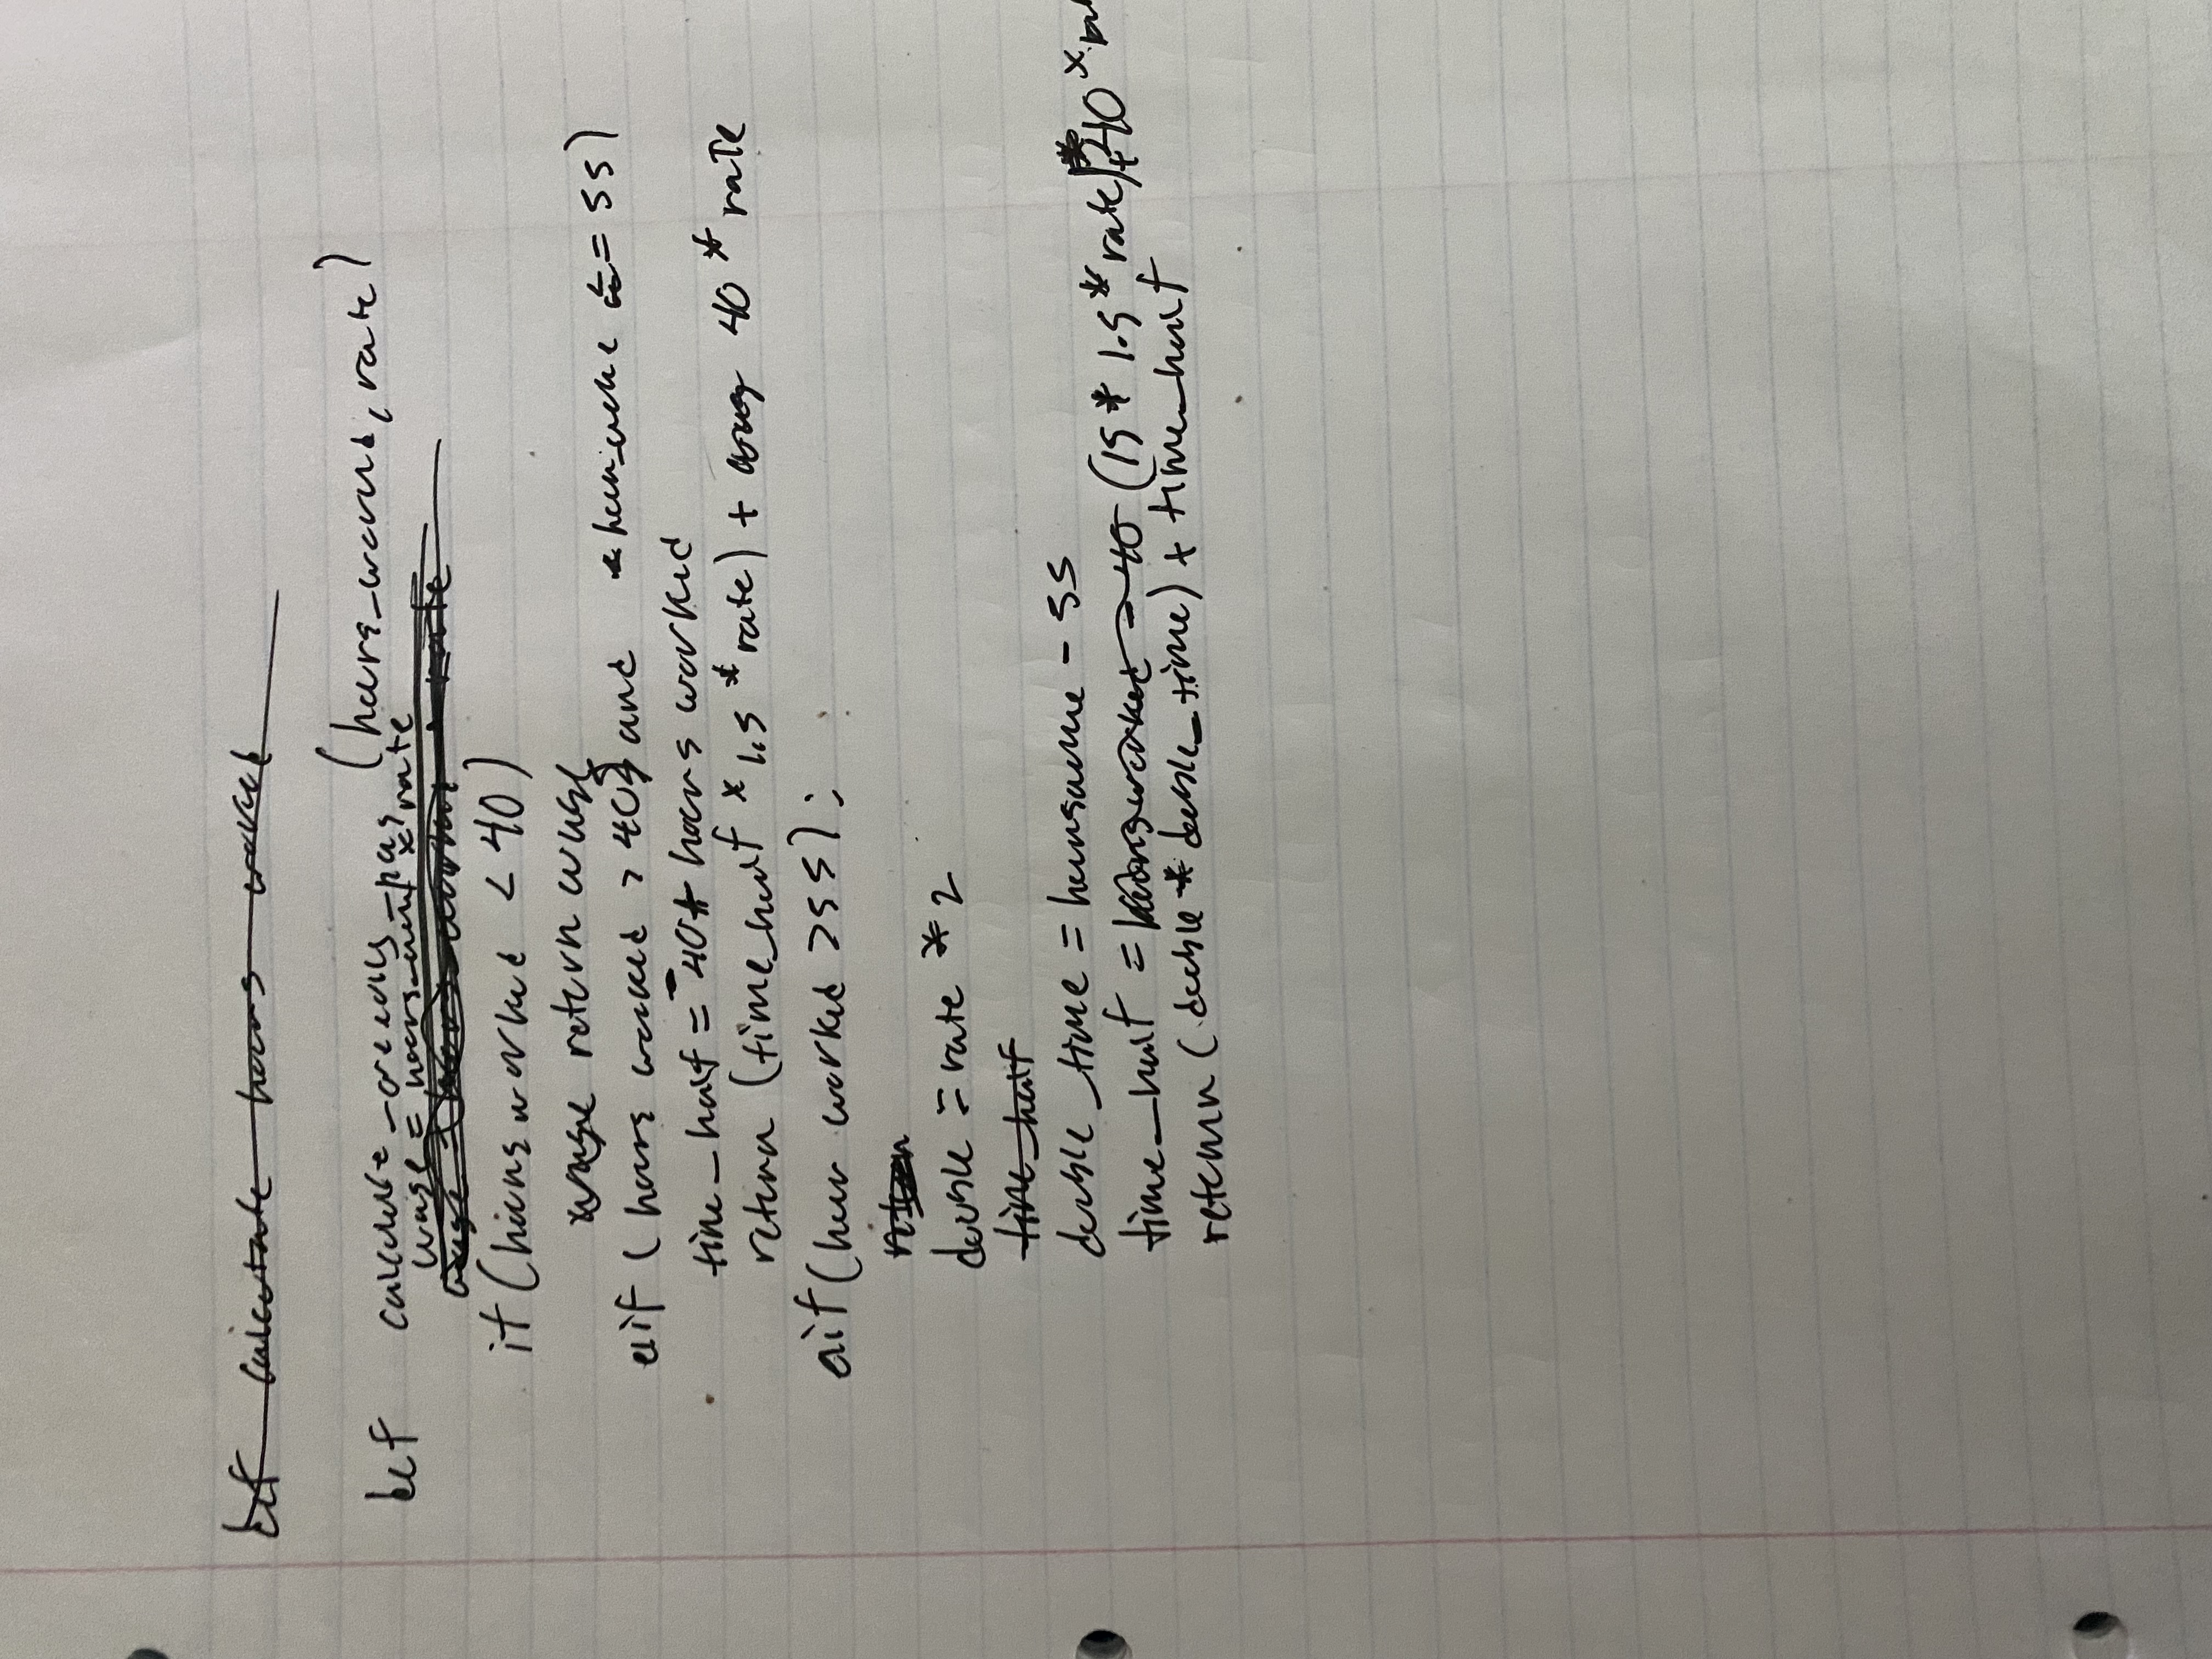 def calculate hours worked
def calculate_weekly_pay (hours_worked, rate)
wage = hours_work * rate
wage = hours worked * rate
if (hours worked < 40)
wage return wage
elif ( hours worked > 40) and hours_worke <= 55)
time_half = -40 + hours worked
return (time_half * 1.5 * rate) + 40 * rate
elif (hour worked > 55) :
return
double = rate * 2
time_half
double_time = hoursworke - 55
time_half = hours worked - 40 (15 * 1.5 * rate) + 40 *
return (double * double_time) + time_half